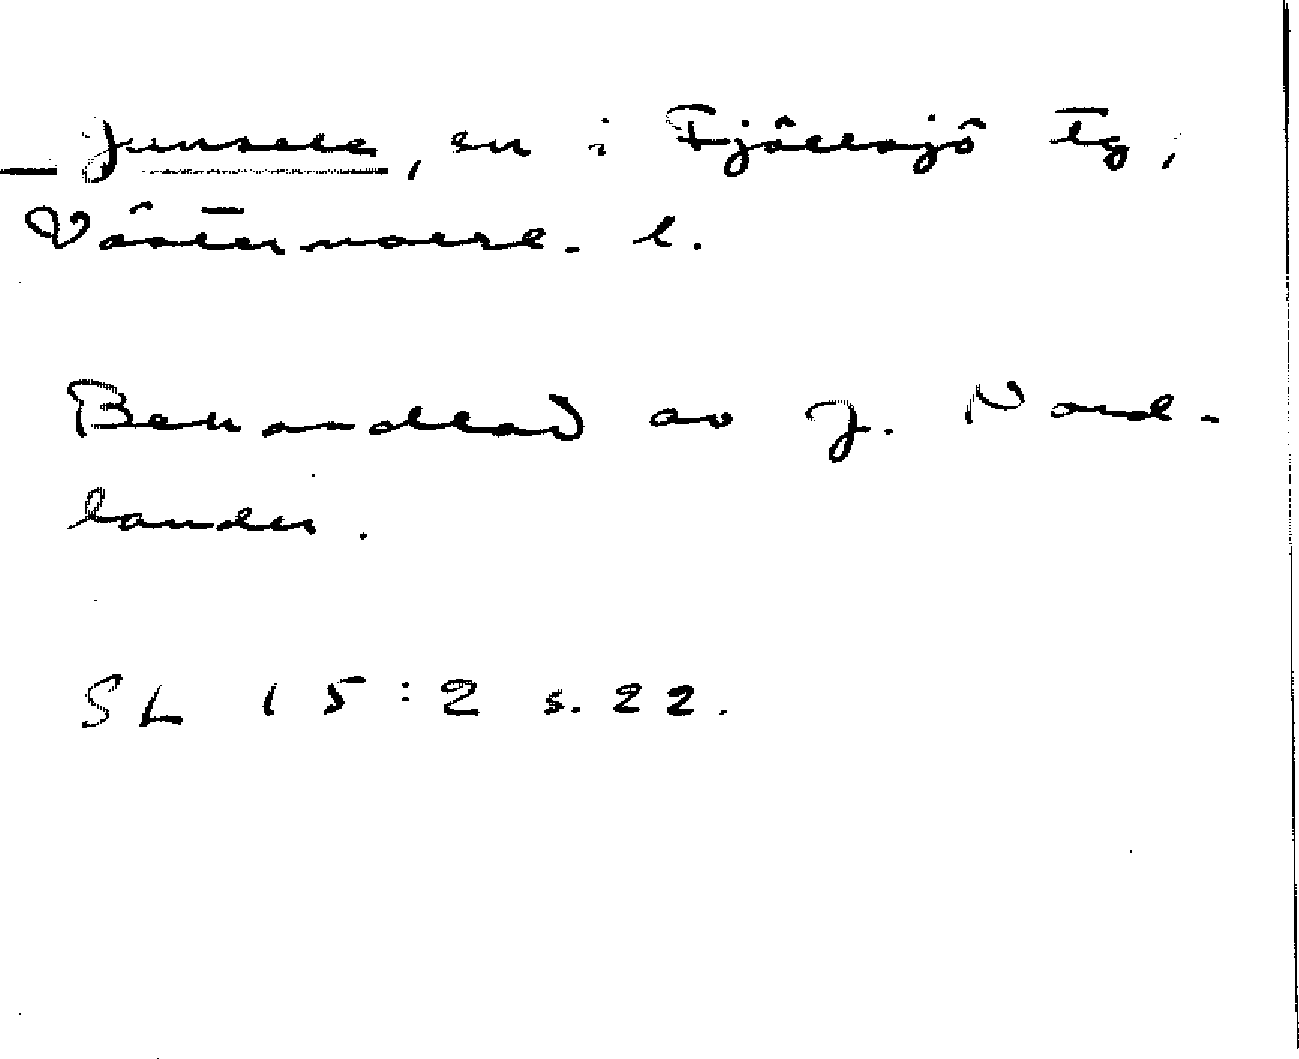 Junsele, sn i Fjällsjö tg,
Västernorrl. l.
Behandlad av J. Nord-
lander.
SL 15:2 s. 22.